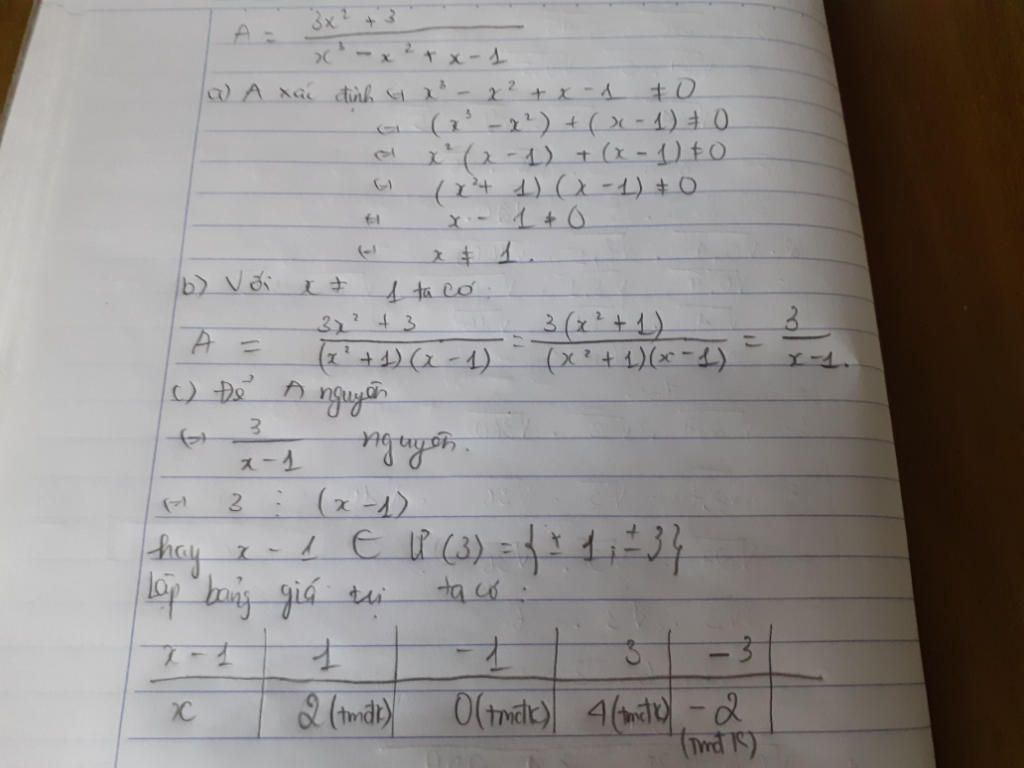 A = (3x² + 3)/(x³ - x² + x - 1)
a) A xác định ⇔ x³ - x² + x - 1 ≠ 0
⇔ (x³ - x²) + (x - 1) ≠ 0
⇔ x²(x - 1) + (x - 1) ≠ 0
⇔ (x² + 1)(x - 1) ≠ 0
⇔ x - 1 ≠ 0
⇔ x ≠ 1.
b) Với x ≠ 1 ta có:
A = (3x² + 3)/((x² + 1)(x - 1)) = 3(x² + 1)/((x² + 1)(x - 1)) = 3/(x - 1).
c) Để A nguyên
⇔ 3/(x - 1) nguyên.
⇔ 3 ⋮ (x - 1)
hay x - 1 ∈ Ư(3) = {± 1; ± 3}
Lập bảng giá trị ta có:
x - 1 | 1 | -1 | 3 | -3
x | 2 (tmđk) | 0 (tmđk) | 4 (tmđk) | -2 (tmđk)